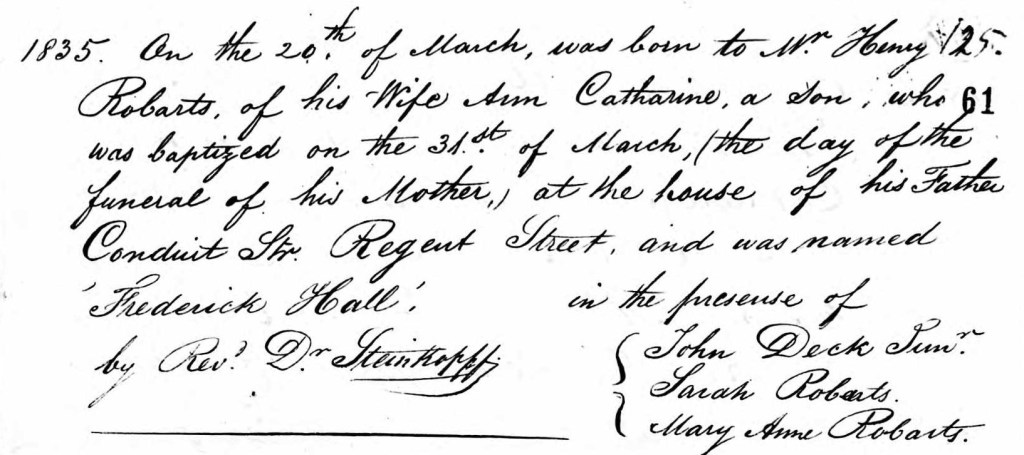 1835. On the 20.th of March, was born to Mr Henry 125.
Robarts, of his Wife Ann Catharine, a Son, who 61
was baptized on the 31.st of March, (the day of the
funeral of his Mother,) at the house of his Father
Conduit Str. Regent Street, and was named
'Frederick Hall'. in the presense of
by Rev.d Dr Steinkopff; { John Deck Junr.
Sarah Robarts.
Mary Anne Robarts.